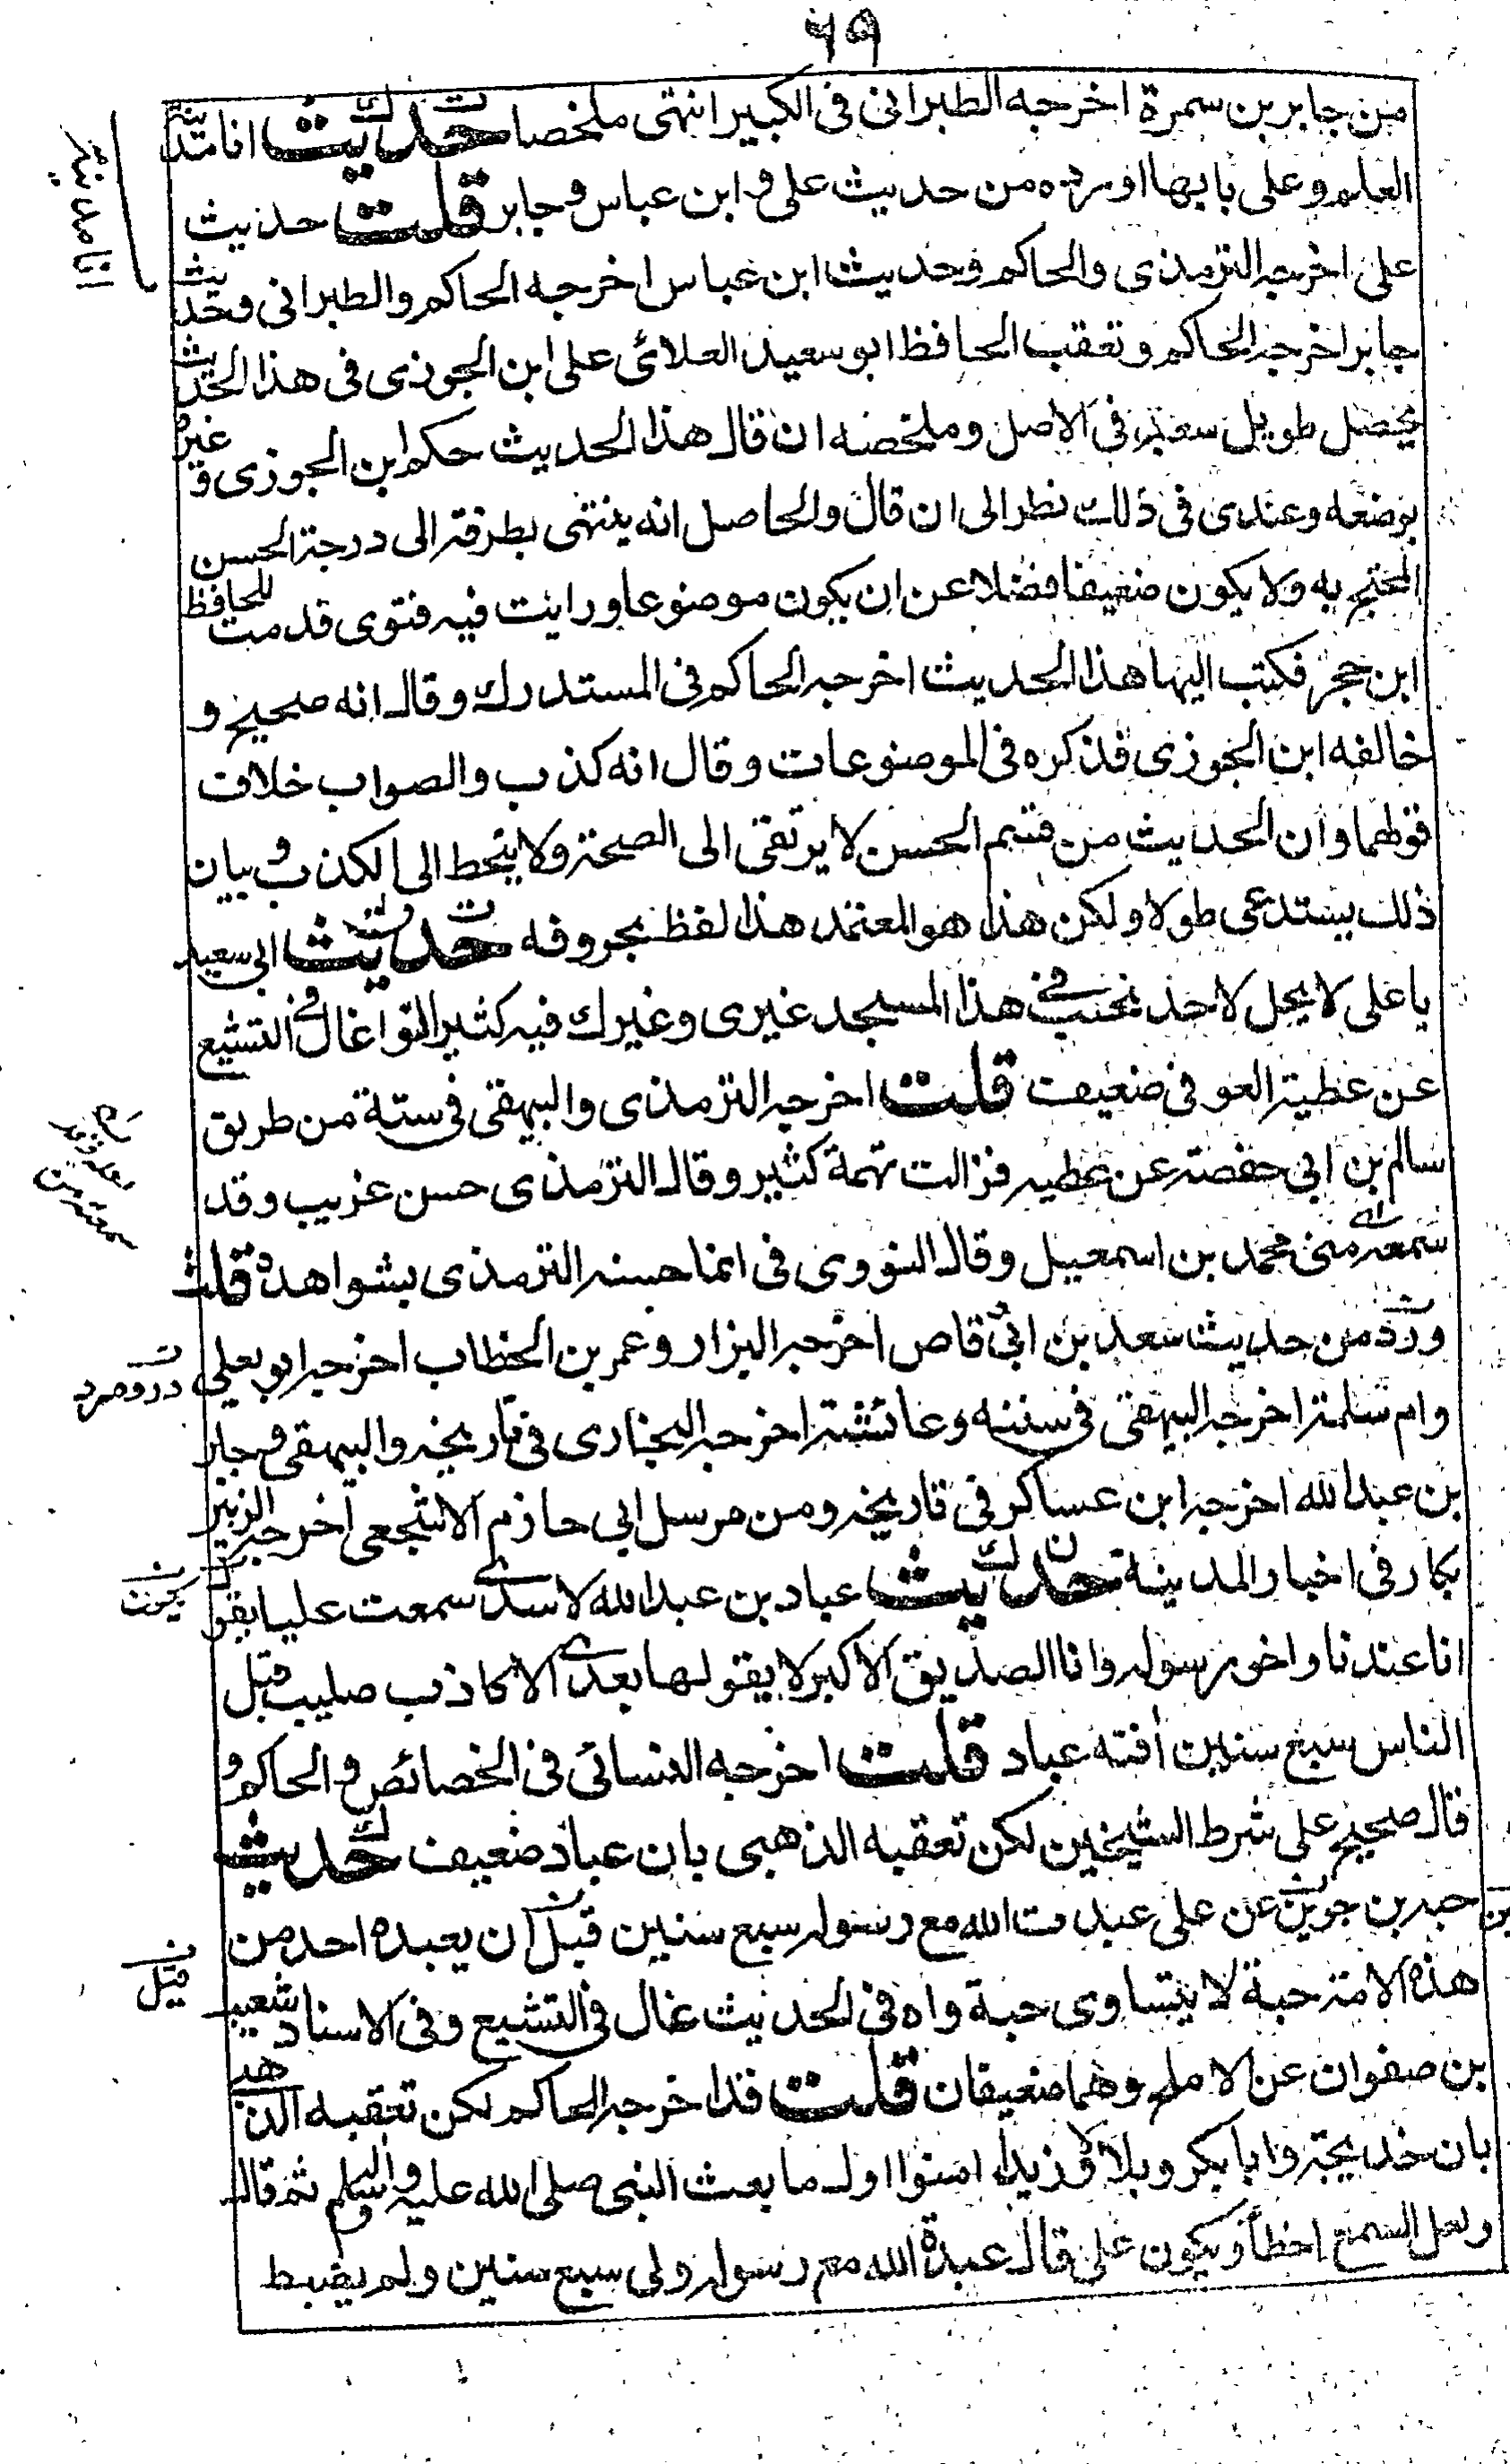 من جابر بن سمرة اخرجه الطبرانى فى الكبير انتهى ملخصا حديث انا مدينة
العلم وعلى بابها اورده من حديث على و ابن عباس و جابر قلت حديث
على اخرجه الترمذى والحاكم وحديث ابن عباس اخرجه الحاكم والطبرانى وحديث
جابر اخرجه الحاكم وتعقب الحافظ ابو سعيد العلائى على ابن الجوزى فى هذا الحديث
طويل فى الاصل وملخصه ان قال هذا الحديث حكم ابن الجوزى و غيره
بوضعه وعندى فى ذلك نظر الى ان قال والحاصل انه ينتهى بطرقه الى درجة الحسن
المحتج به ولا يكون ضعيفا فضلا عن ان يكون موضوعا ورايت فيه فتوى قدمت للحافظ
ابن حجر فكتب اليها هذا الحديث اخرجه الحاكم فى المستدرك وقال انه صحيح و
خالفه ابن الجوزى فذكره فى الموضوعات وقال انه كذب والصواب خلاف
قولهما وان الحديث من قسم الحسن لا يرتقى الى الصحة ولا ينحط الى الكذب و بيان
ذلك يستدعى طولا ولكن هذا هو المعتمد هذا لفظ بحروفه حديث ابى سعيد
يا على لا يحل لاحد يجنب فى هذا المسجد غيرى وغيرك فيه كثير النوا غال فى التشيع
عن عطية العوفى ضعيف قلت اخرجه الترمذى والبيهقى فى ستة من طريق
سالم بن ابى حفصة عن عطيه فزالت تهمة كثير وقال الترمذى حسن غريب وقد
سمعه منى محمد بن اسمعيل وقال النووى فى انما حسنه الترمذى بشواهده قلت
ورد من حديث سعد بن ابى قاص اخرجه البزار وعمر بن الخطاب اخرجه ابو يعلى
وام سلمة اخرجه البيهقى فى سننه وعائشة اخرجه البخارى فى تاريخه والبيهقى و جابر
بن عبد الله اخرجه ابن عساكر فى تاريخه ومن مرسل ابى حازم الاشجعى اخرجه الزبير
بكار فى اخبار المدينة حديث عباد بن عبد الله لاسدى سمعت عليا يقول
انا عبدنا واخو رسوله وانا الصديق الاكبر لا يقولها بعدى الا كاذب صليت قبل
الناس سبع سنين أفته عباد قلت اخرجه النسائى فى الخصائص و الحاكم و
قال صحيح على شرط الشيخين لكن تعقبه الذهبى بان عباد ضعيف حديث
حبه بن جوين عن على عبدت الله مع رسوله سبع سنين قبل ان يعبده احد من
هذه الامة حبة لا يتساوى حبة واه فى الحديث غال فى التشيع وفى الاسناد شعيب
بن صفوان عن الاملح وهما ضعيفان قلت قد اخرجه الحاكم لكن تعقبه الذهبى
بان خديجة وابا بكر وبلالا و زيدا امنوا اول ما بعث النبى صلى الله عليه واله وسلم ثم قال
ولعل السمع اخطأ ويكون على قال عبدة الله مع رسوله ولى سبع سنين ولم يضبط
انا مدينة
قبل